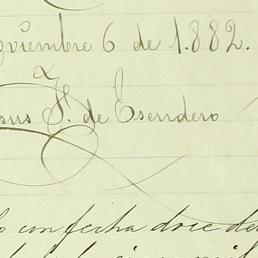 oviembre 6 de 1.882.
sus F. de Escudero
lo con fecha doce de